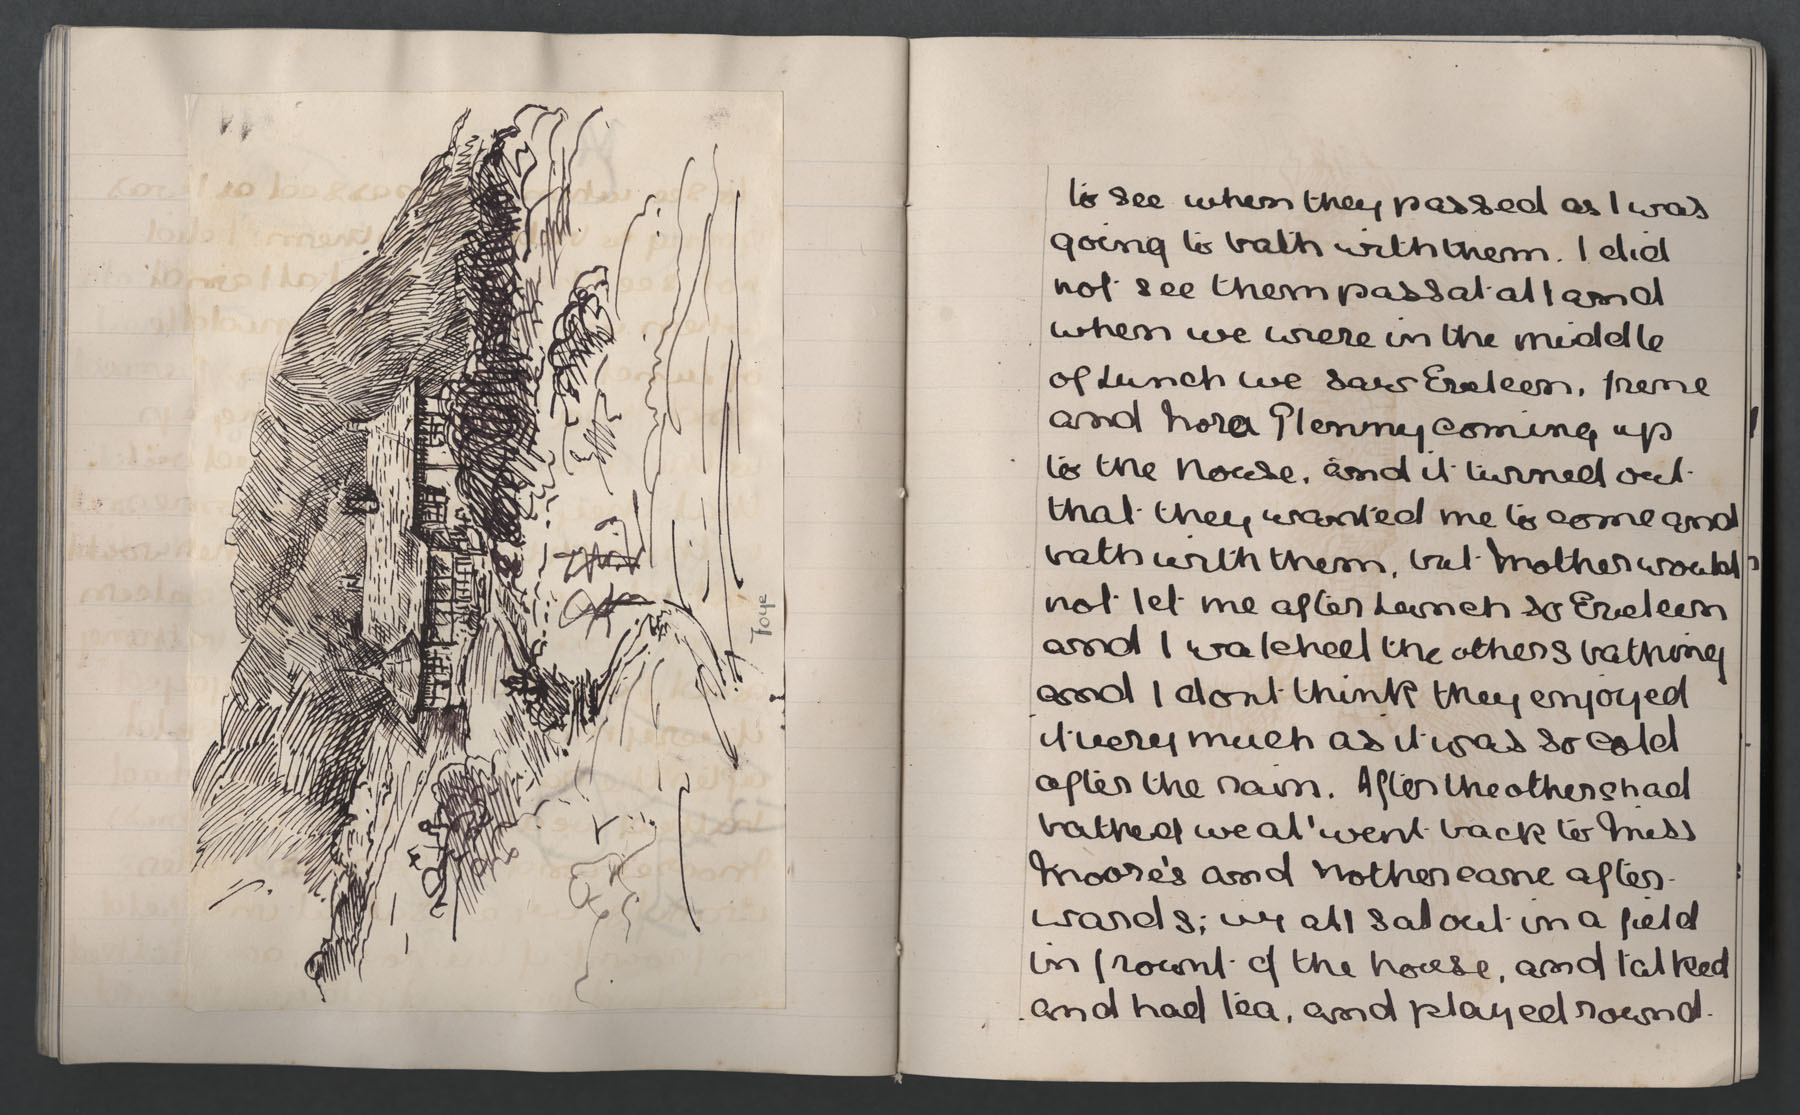 Toye
to see when they passed as I was
going to bath with them. I did
not see them pass at all and
when we were in the middle
of Lunch we saw Eveleen, Irene
and Nora Glenny coming up
to the house, and it turned out
that they wanted me to come and
bath with them, but Mother would
not let me after Lunch so Eveleen
and I watched the others bathing
and I dont think they enjoyed
it very much as it was so cold
after the rain. After the others had
bathed we all went back to Miss
Moore's and Mother came after-
wards; we all sat out in a field
in frount of the house, and talked
and had tea, and played round.